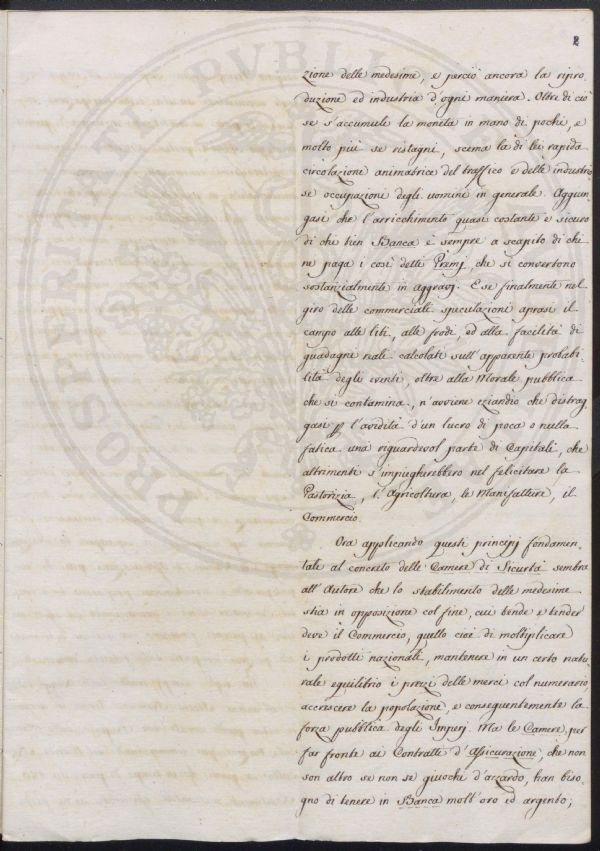 2
zione delle medesime, e perciò ancora la ripro-
duzione ed industria d'ogni maniera. Oltre di ciò
se s'accumuli la moneta in mano di pochi, e
molto più se ristagni, scema la di lei rapida
circolazione animatrice del traffico e delle industrio-
se occupazioni degli uomini in generale. Aggiun-
gasi che l'arricchimento quasi costante e sicuro
di chi tien Banca è sempre a scapito di chi
ne paga i così detti Premj, che si convertono
sostanzialmente in aggravj. E se finalmente nel
giro delle commerciali speculazioni aprasi il
campo alle liti, alle frodi, ed alla facilità di
guadagni reali calcolati sull'apparente probabi-
lità degli eventi, oltre alla Morale pubblica
che si contamina, n'avviene eziandio che distrag-
gasi p l'avidità d'un lucro di poca o nulla
fatica una riguardevol parte di Capitali, che
altrimenti s'impiegherebbero nel felicitare la
Pastorizia, l'Agricoltura, le Manifatture, il
Commercio.
Ora applicando questi principj fondamen-
tale al concreto delle Camere di Sicurtà sembra
all'Autore che lo stabilimento delle medesime
stia in opposizione col fine, cui tende e tender
deve il Commercio, quello cioè di moltiplicare
i prodotti nazionali, mantenere in un certo natu-
rale equilibrio i prezzi delle merci col numerario,
accrescere la popolazione, e conseguentemente la
forza pubblica degli Imperj. Ma le Camere, per
far fronte ai Contratti d'Assicurazione, che non
son altro se non se giuochi d'azzardo, han biso-
gno di tenere in Banca molt'oro ed argento;
PROSPERITATI PVBLIC